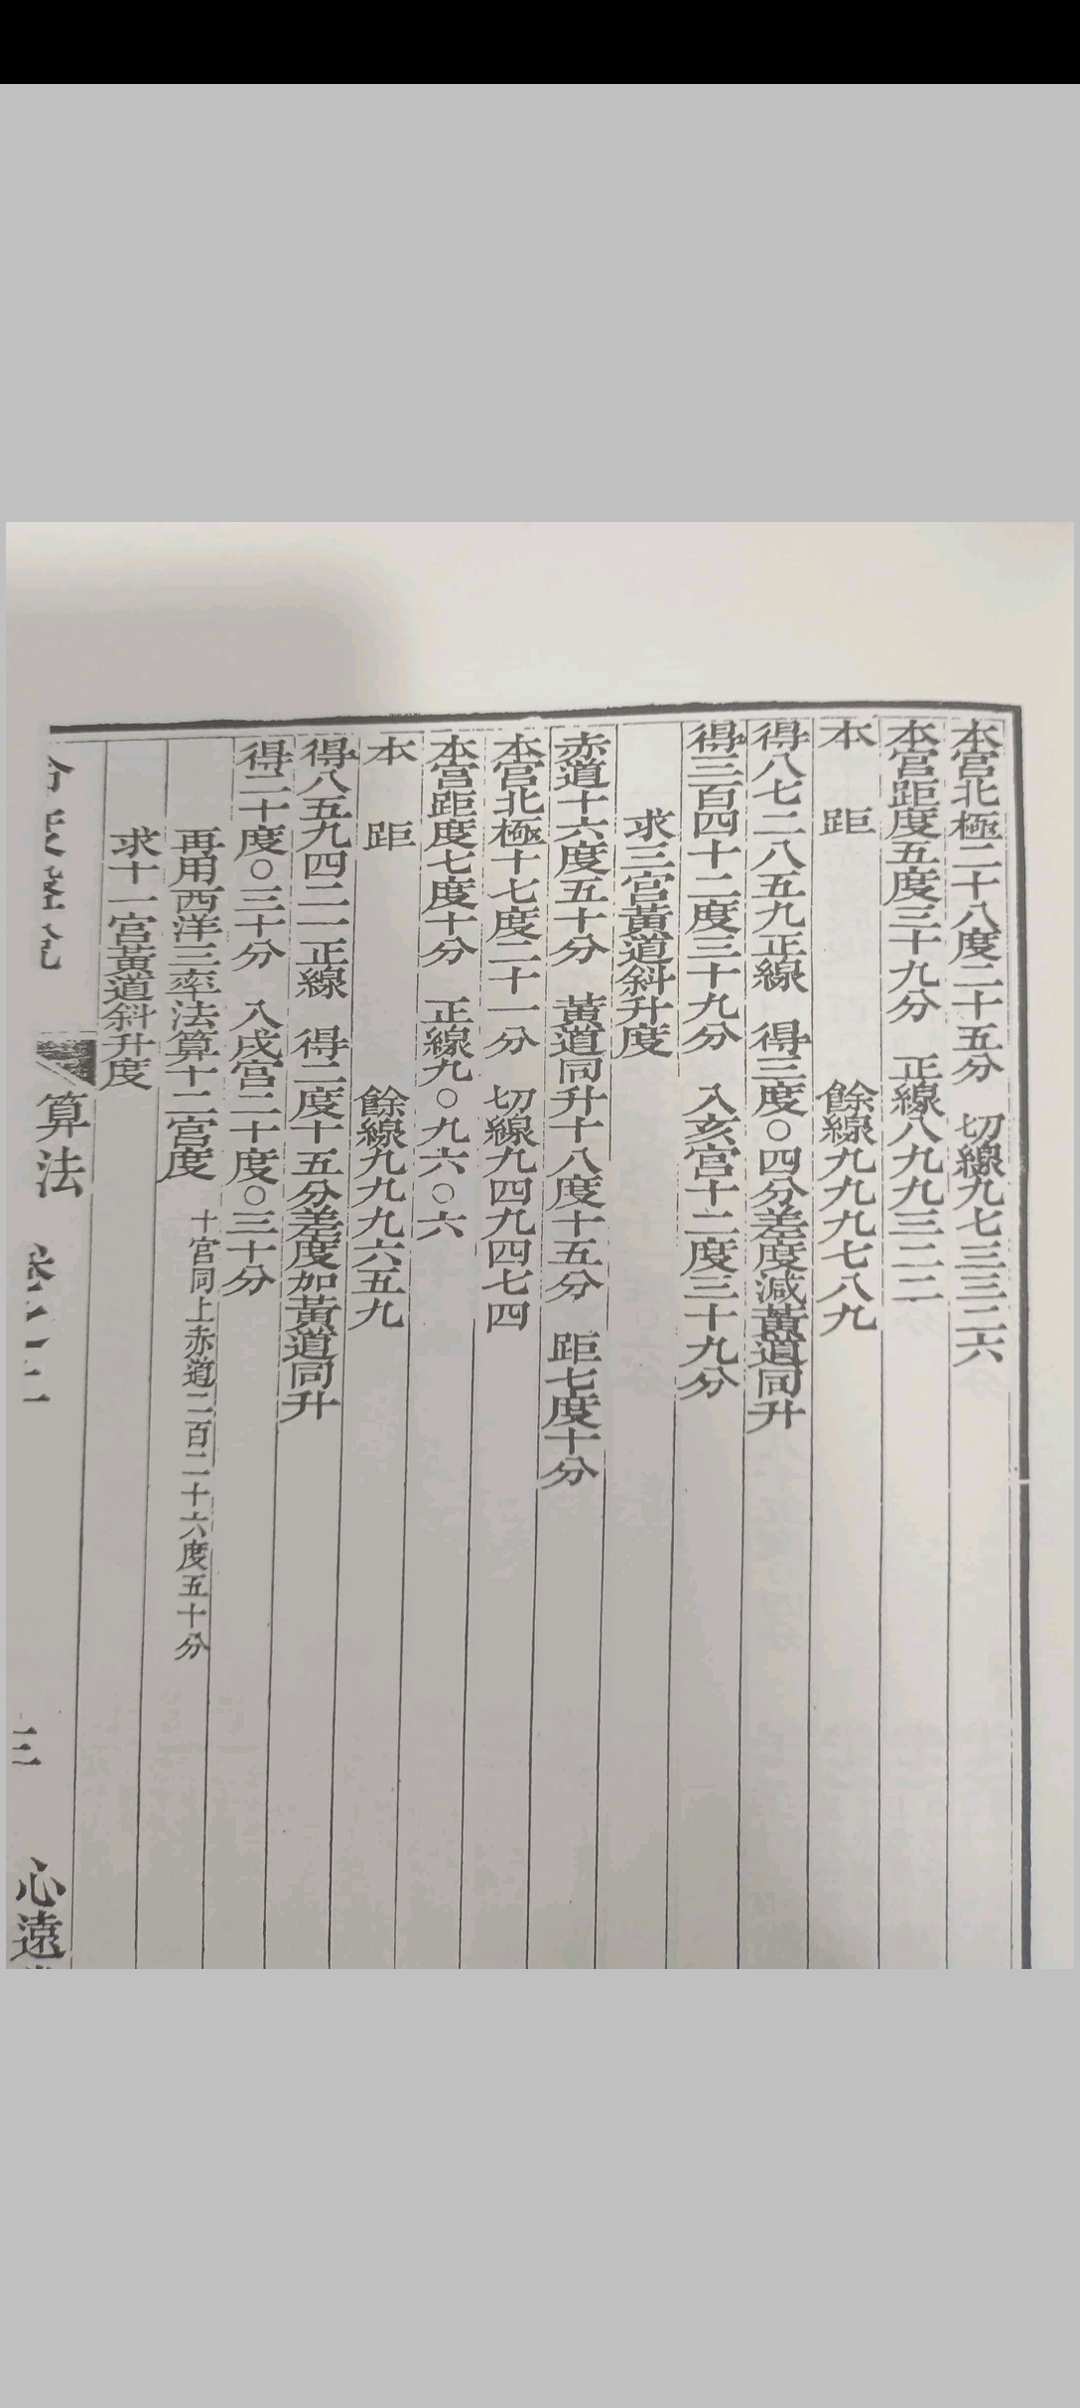 本宮北極二十八度二十五分　切線九七三三二六
本宮距度五度三十九分　正線八九九三二二
本　距　餘線九九九七八九
得八七二八五九正線　得三度○四分差度減黃道同升
得三百四十二度三十九分　入亥宮十二度三十九分
求三宮黃道斜升度
赤道十六度五十分　黃道同升十八度十五分　距七度十分
本宮北極十七度二十一分　切線九四九四七四
本宮距度七度十分　正線九○九六○六
本　距　餘線九九九六五九
得八五九四二一正線　得二度十五分差度加黃道同升
得二十度○三十分　入戌宮二十度○三十分
再用西洋三率法算十二宮度　十宮同上赤道二百二十六度五十分
求十一宮黃道斜升度
算法　三　心遠